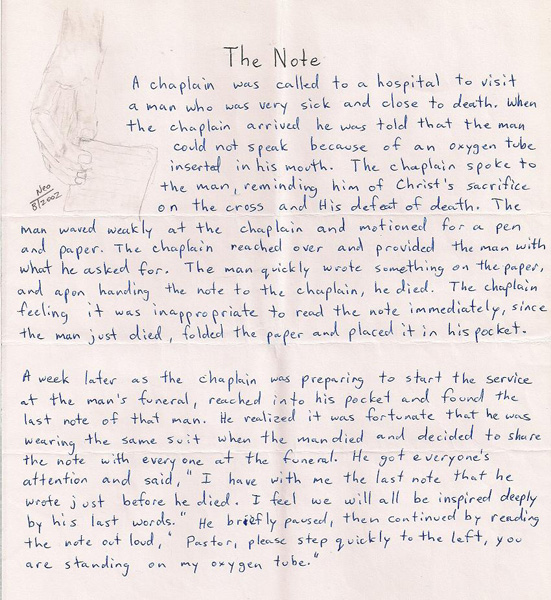 The Note
A chaplain was called to a hospital to visit
a man who was very sick and close to death. When
the chaplain arrived he was told that the man
could not speak because of an oxygen tube
inserted in his mouth. The chaplain spoke to
the man, reminding him of Christ's sacrifice
on the cross and His defeat of death. The
Neo
8/2002
man waved weakly at the chaplain and motioned for a pen
and paper. The chaplain reached over and provided the man with
what he asked for. The man quickly wrote something on the paper,
and apon handing the note to the chaplain, he died. The chaplain
feeling it was inappropriate to read the note immediately, since
the man just died, folded the paper and placed it in his pocket.
A week later as the chaplain was preparing to start the service
at the man's funeral, reached into his pocket and found the
last note of that man. He realized it was fortunate that he was
wearing the same suit when the man died and decided to share
the note with everyone at the funeral. He got everyone's
attention and said, "I have with me the last note that he
wrote just before he died. I feel we will all be inspired deeply
by his last words." He briefly paused, then continued by reading
the note out loud, "Pastor, please step quickly to the left, you
are standing on my oxygen tube."